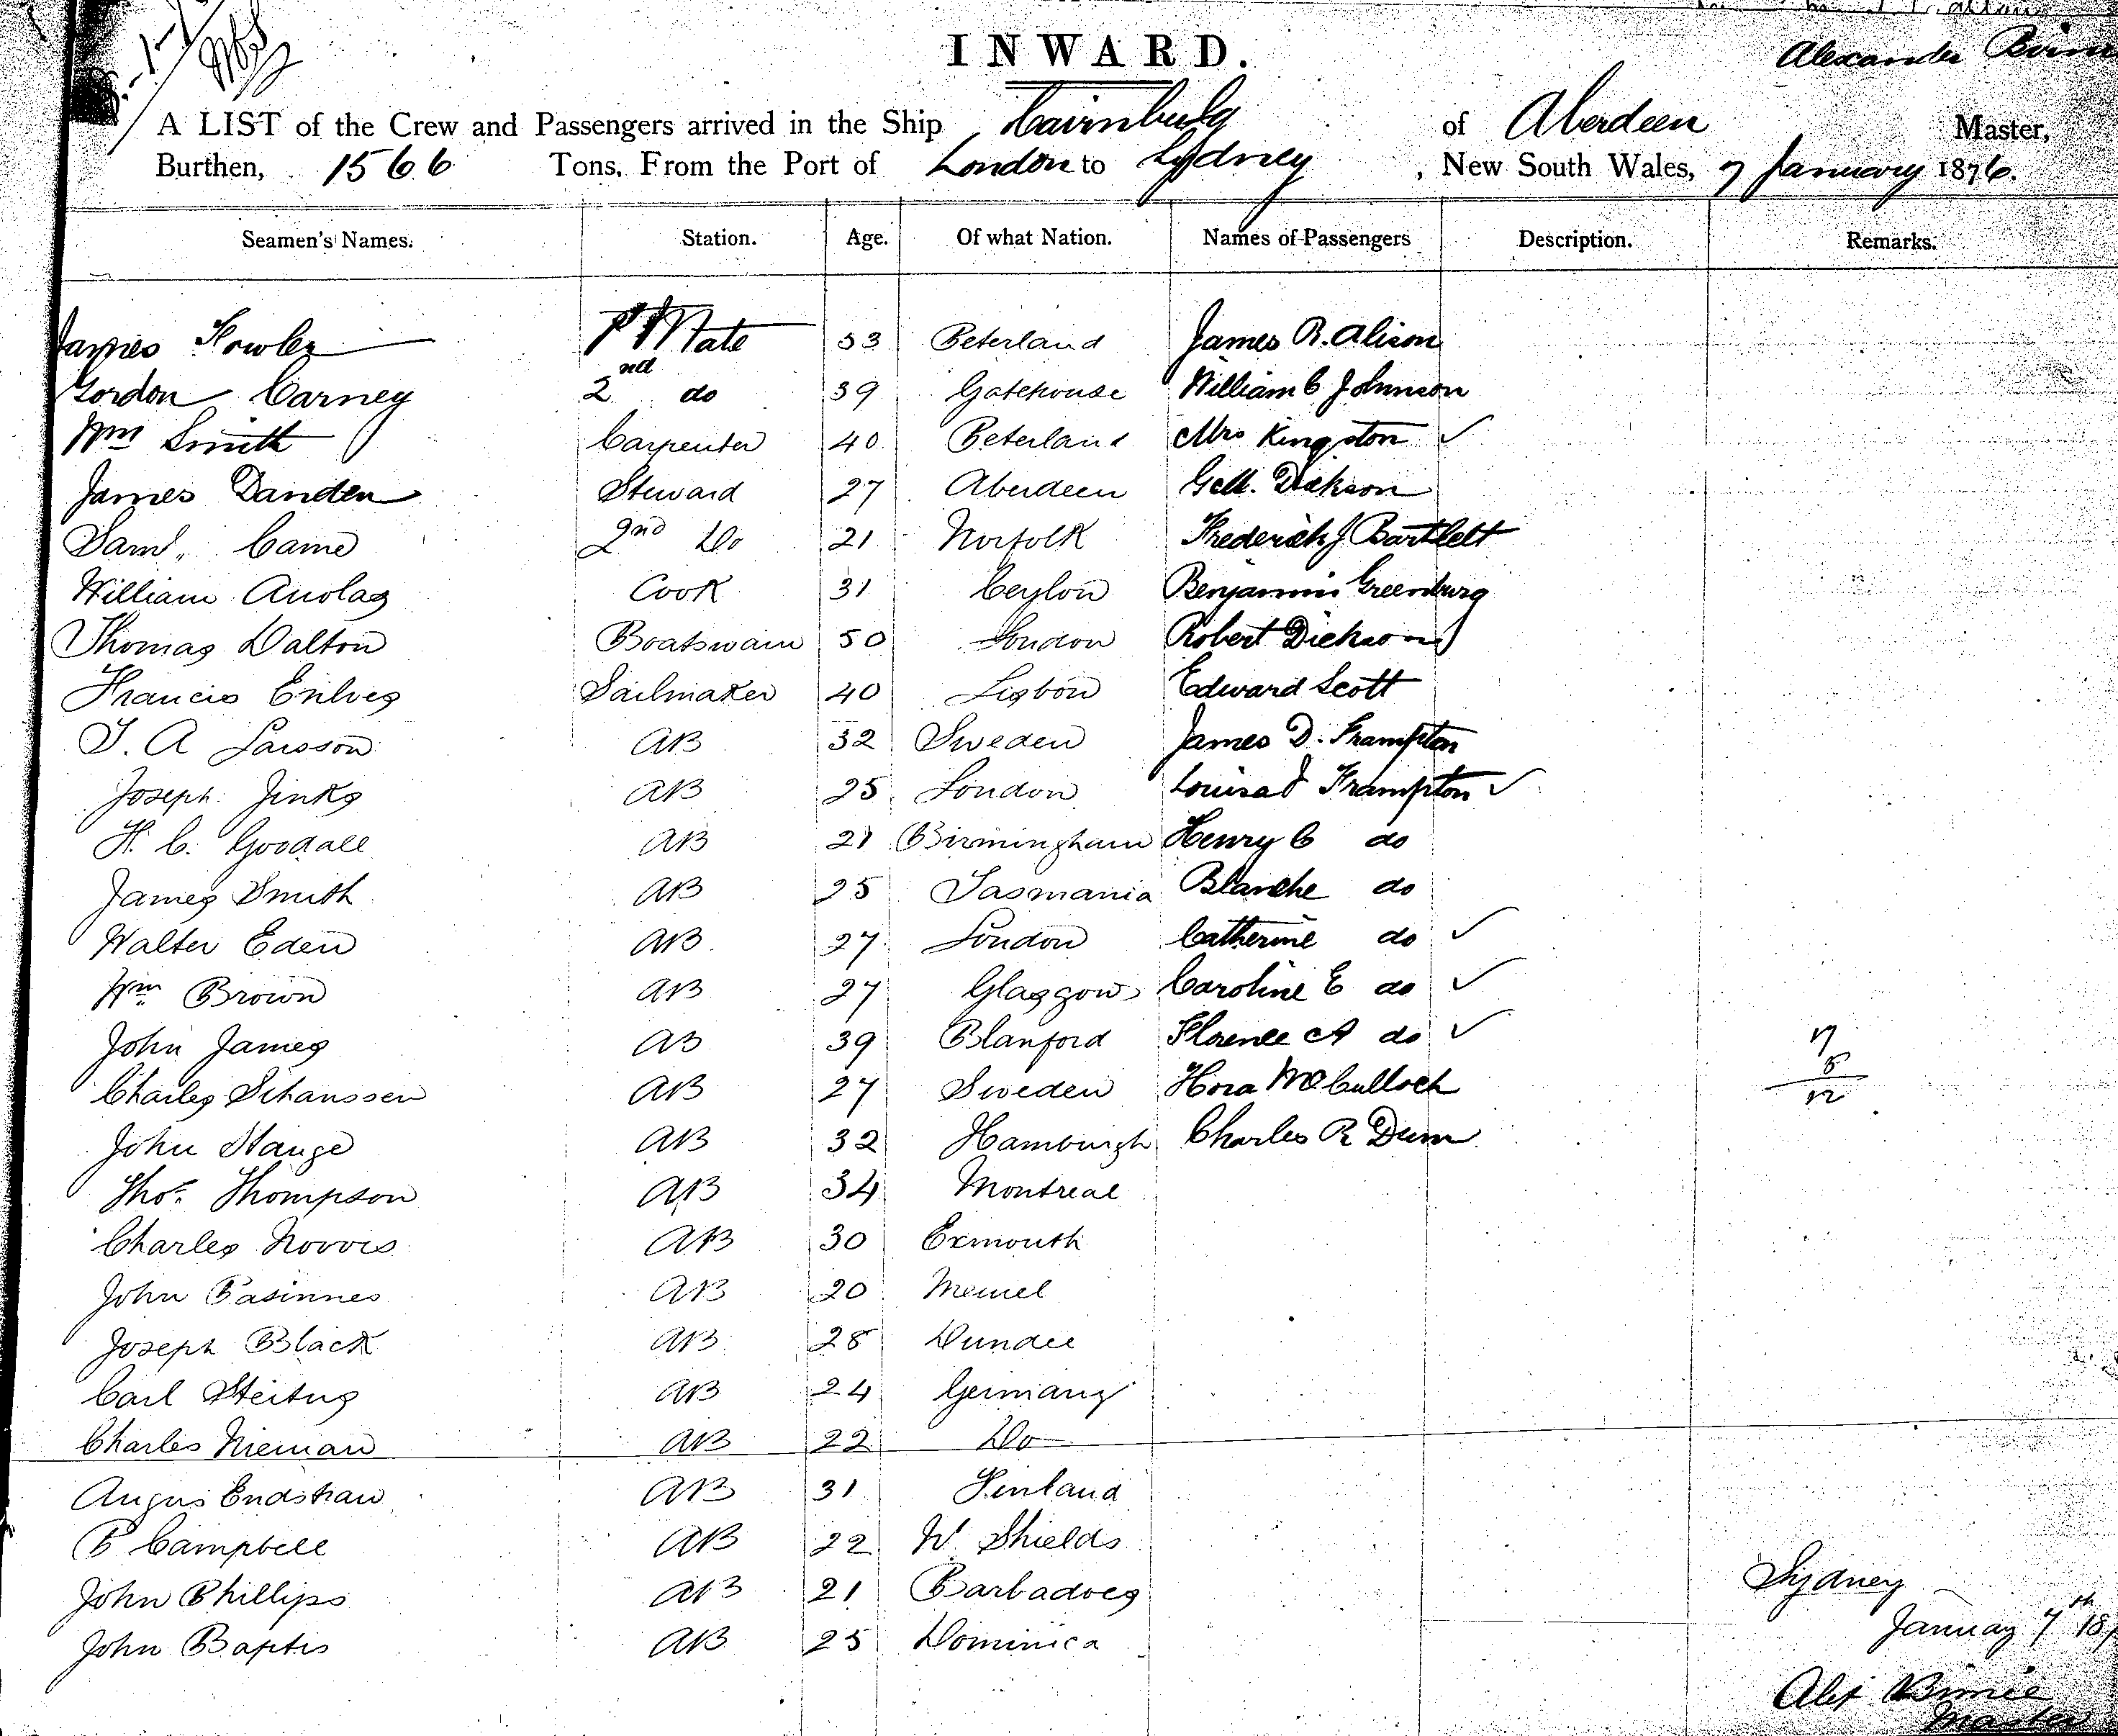 INWARD.
Alexander Birnie
A LIST of the Crew and Passengers arrived in the Ship Cairnbulg of Aberdeen Master,
Burthen, 1566 Tons, From the Port of London to Sydney, New South Wales, 7 January 1876.
Seamen's Names. Station. Age. Of what Nation. Names of Passengers Description. Remarks.
James Fowler 1st Mate 53 Peterland James R. Alison
Gordon Carney 2nd do 39 Gatehouse William C Johnson
Wm Smith Carpenter 40 Peterland Mrs Kingston ✓
James Danden Steward 27 Aberdeen Dickson
Saml. Came 2nd Do 21 Norfolk Frederick J Bartlett
William Auolas Cook 31 Ceylon Benjamin Greenburg
Thomas Dalton Boatswain 50 London Robert Dickson
Francis Enlves Sailmaker 40 Lisbon Edward Scott
T. A Larsson AB 32 Sweden James D. Frampton
Joseph Jinks AB 25 London Louisa J Frampton ✓
H. C. Goodall AB 21 Birmingham Henry C do
James Smith AB 25 Tasmania Blanche do
Walter Eden AB 27 London Catherine do ✓
Wm Brown AB 27 Glasgow Caroline E do ✓
John James AB 39 Blanford Florence A do ✓
Charles Sihanssen AB 27 Sweden Hora McCulloch
John Stange AB 32 Hamburgh Charles R Dunn
Thos. Thompson AB 34 Montreal
Charles Norris AB 30 Exmouth
John Pasinnes AB 20 Memel
Joseph Black AB 28 Dundee
Carl Steitng AB 24 Germany
Charles Nieman AB 22 Do
Angus Endstraw AB 31 Finland
P Campbell AB 22 W. Shields
John Phillips AB 21 Barbadoes
John Baptis AB 25 Dominica
Sydney
January 7th 18
Alex Birnie
Master